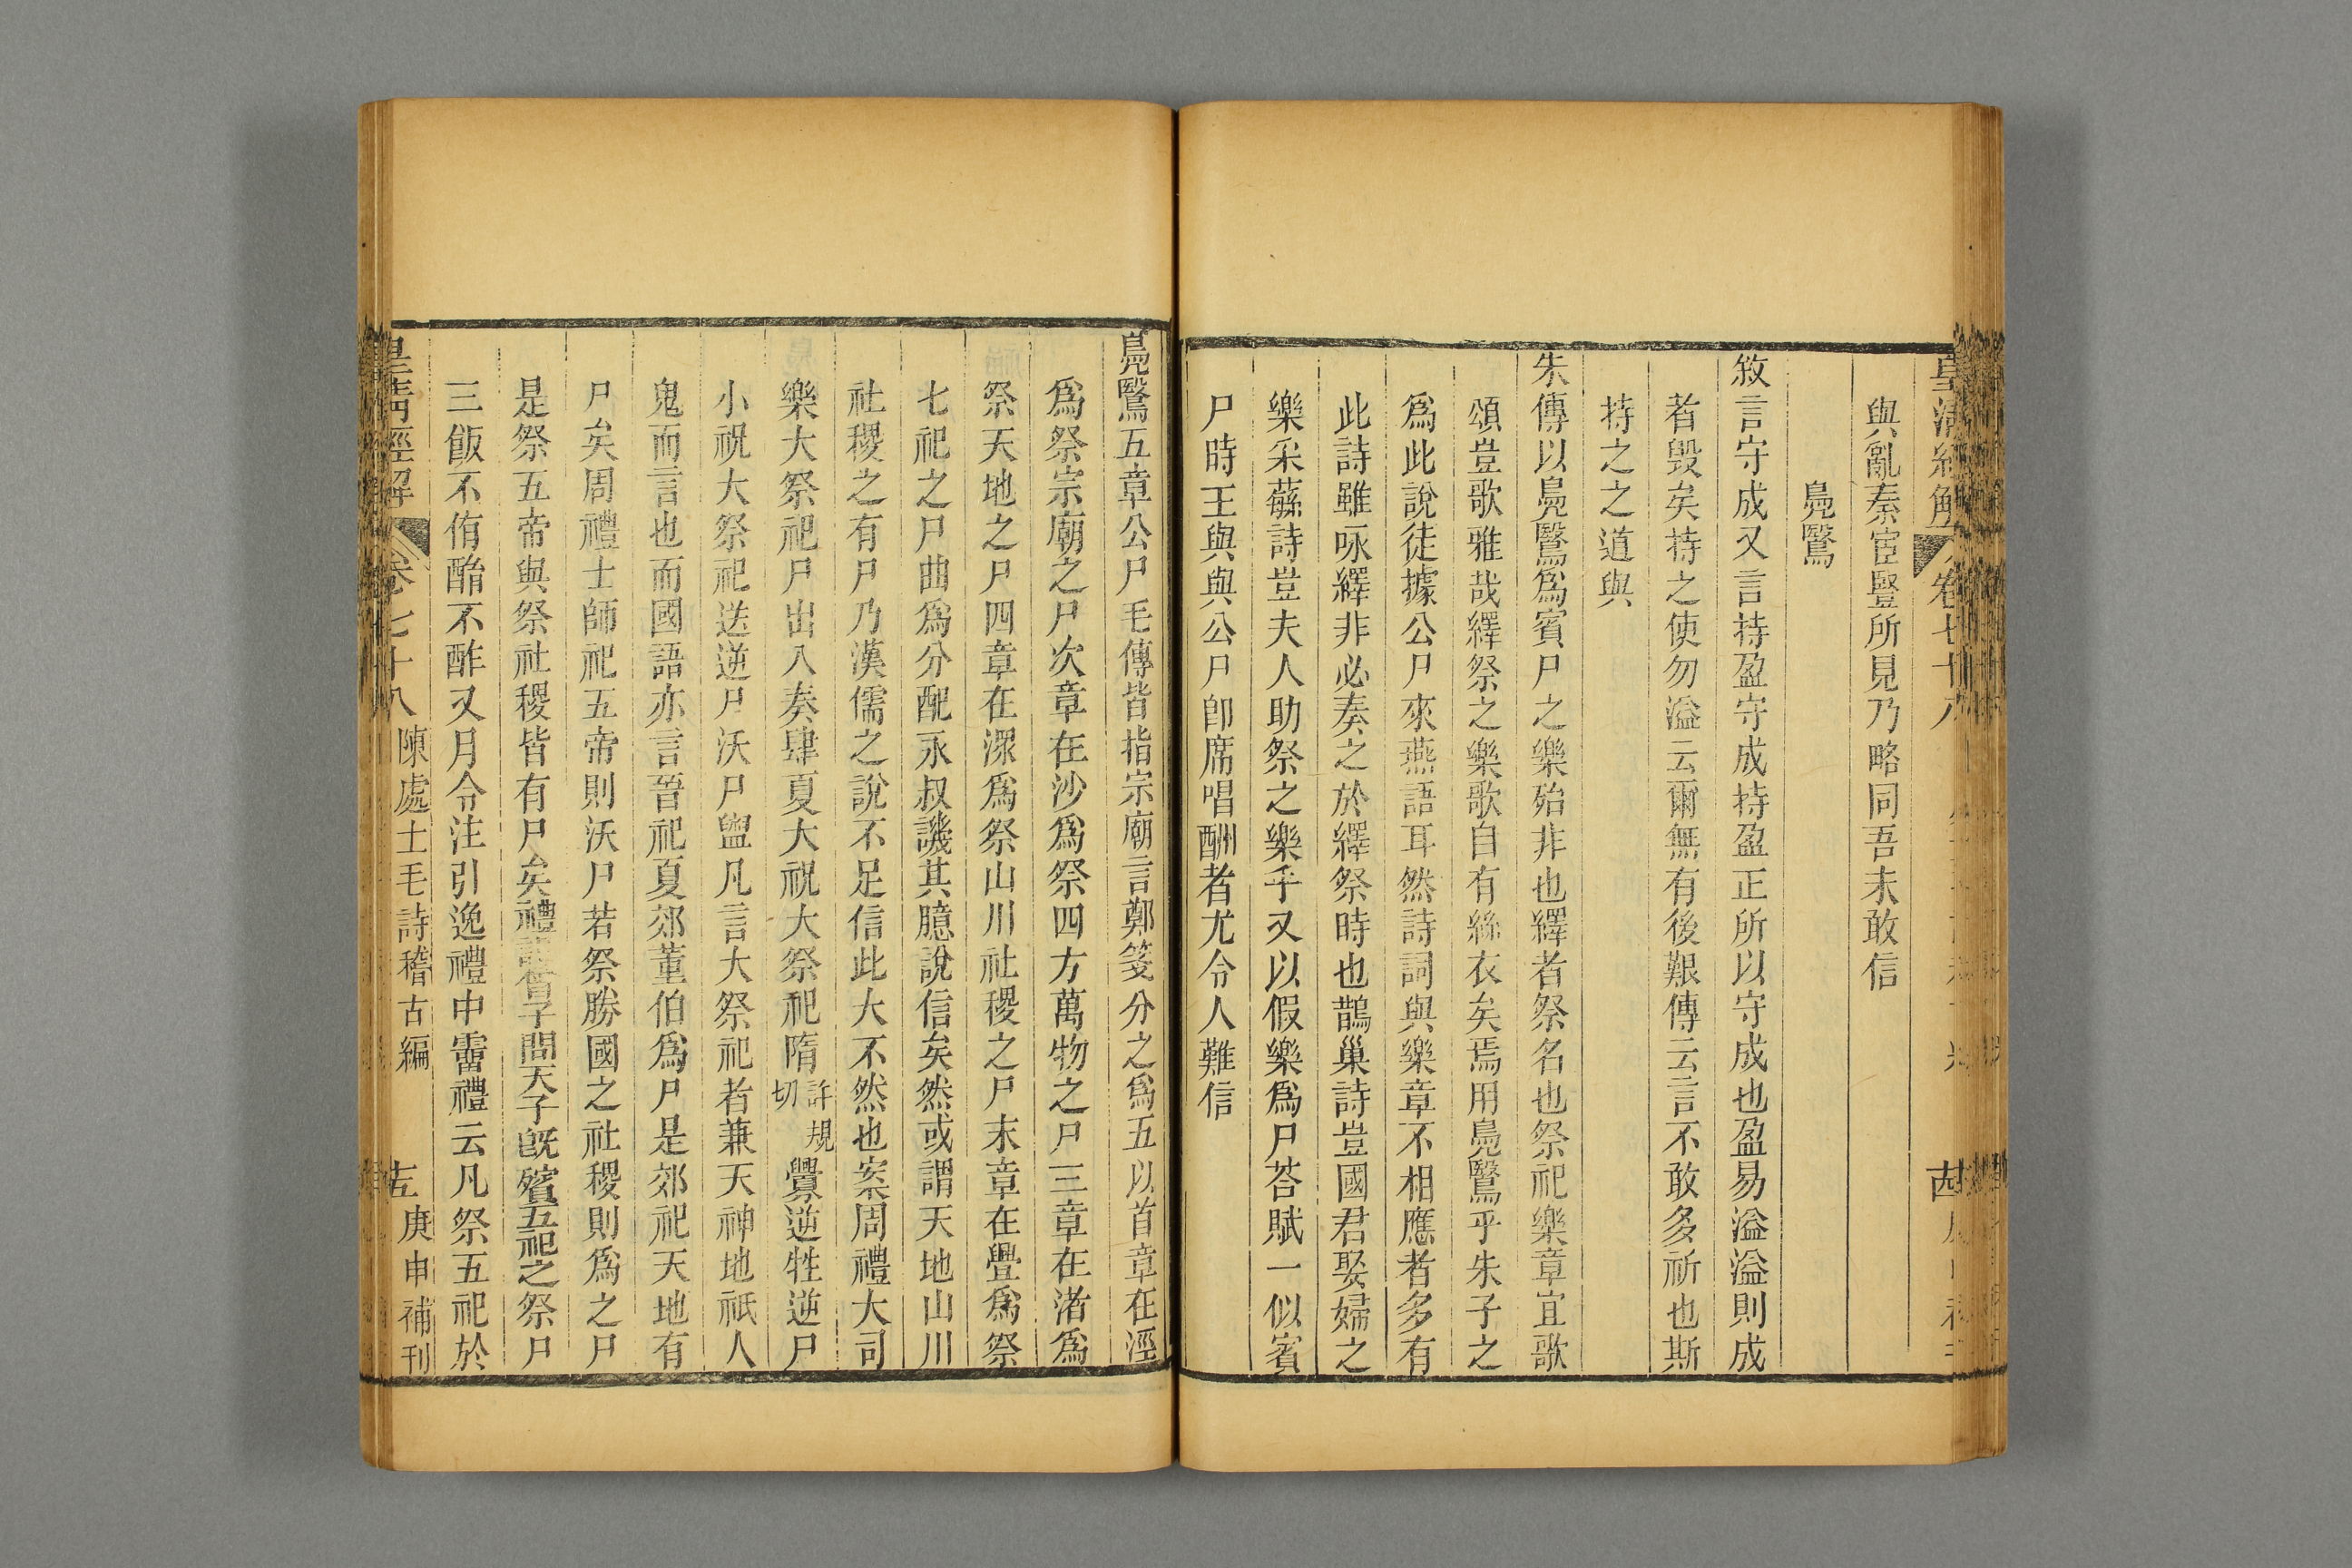 皇清經解 卷七十八
與亂秦宦豎所見乃略同吾未敢信
鳧鷖
敘言守成又言持盈守成持盈正所以守成也盈易溢溢則成
者毀矣持之使勿溢云爾無有後艱傳云言不敢多祈也斯
持之之道與
朱傳以鳧鷖爲賓尸之樂殆非也繹者祭名也祭祀樂章宜歌
頌豈歌雅哉繹祭之樂歌自有絲衣矣焉用鳧鷖乎朱子之
爲此說徒據公尸來燕語耳然詩詞與樂章不相應者多有
此詩雖咏繹非必奏之於繹祭時也鵲巢詩豈國君娶婦之
樂采蘩詩豈夫人助祭之樂乎又以假樂爲尸荅賦一似賓
尸時王與與公尸卽席唱酬者尤令人難信
鳧鷖五章公尸毛傳皆指宗廟言鄭箋分之爲五以首章在涇
爲祭宗廟之尸次章在沙爲祭四方萬物之尸三章在渚爲
祭天地之尸四章在潀爲祭山川社稷之尸末章在亹爲祭
七祀之尸曲爲分配永叔譏其臆說信矣然或謂天地山川
社稷之有尸乃漢儒之說不足信此大不然也案周禮大司
樂大祭祀尸出入奏肆夏大祝大祭祀隋許規切釁逆牲逆尸
小祝大祭祀送逆尸沃尸盥凡言大祭祀者兼天神地祇人
鬼而言也而國語亦言晉祀夏郊董伯爲尸是郊祀天地有
尸矣周禮士師祀五帝則沃尸若祭勝國之社稷則爲之尸
是祭五帝與祭社稷皆有尸矣禮記曾子問天子旣殯五祀之祭尸
三飯不侑酳不酢又月令注引逸禮中霤禮云凡祭五祀於
皇清經解 卷七十八 陳處士毛詩稽古編 庚申補刊